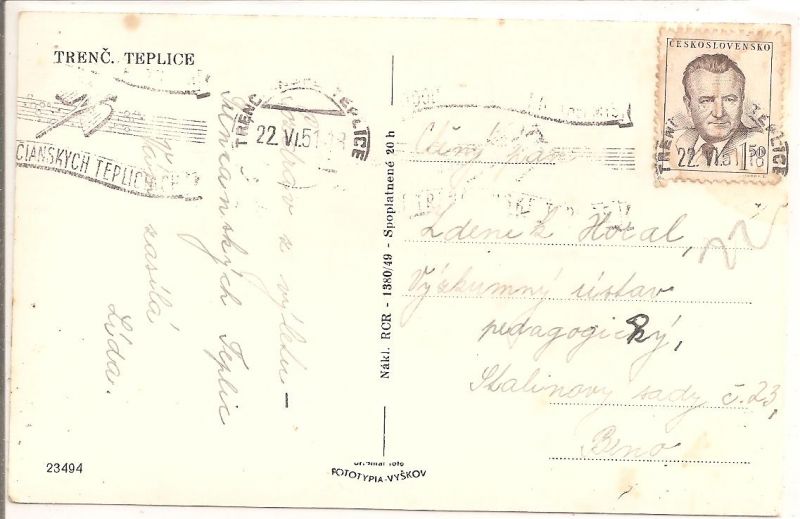 TRENČ. TEPLICE
TEPLICE
22.VI.51-18
CIANSKYCH TEPLIC
z výletu –
Trenčianských Teplic
zasílá
Lída.
23494
Nákl. RCR - 1380/49 - Spoplatnené 20 h
FOTOTYPIA-VYŠKOV
ČESKOSLOVENSKO
1.50
TEPLICE
22.VI.51 18
Vážený pan
Zdeněk Horal,
Výzkumný ústav
pedagogický,
Stalinovy sady č. 23,
Brno
22